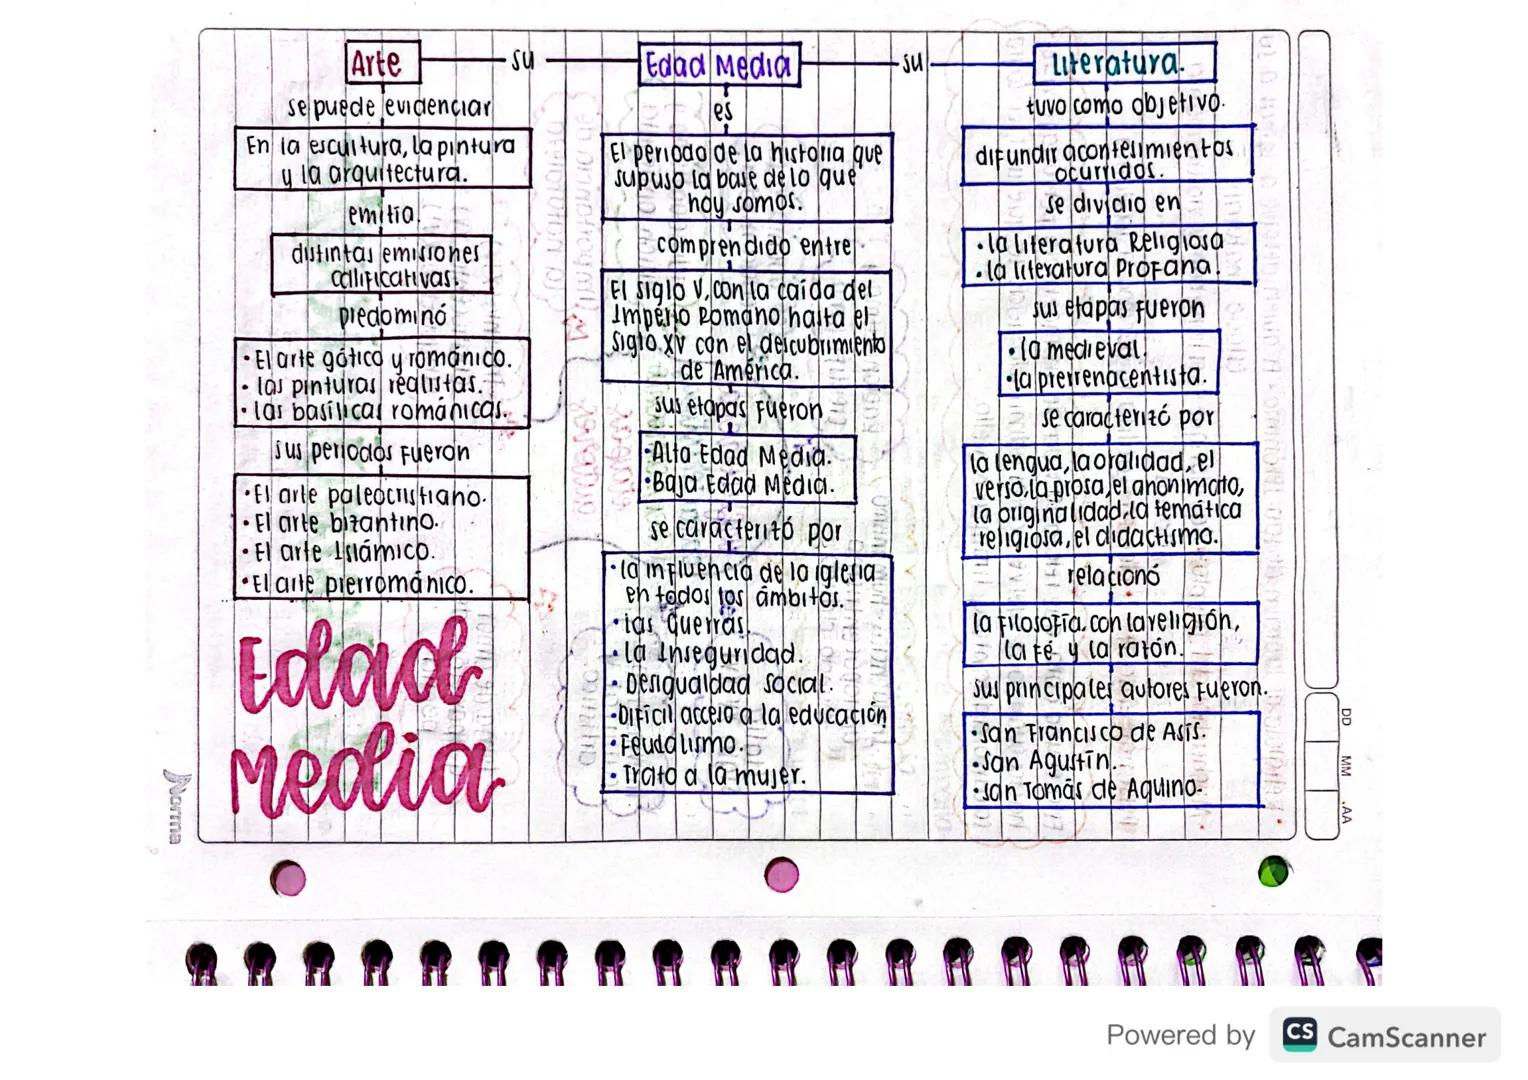 Arte su Edad Media su Literatura.
se puede evidenciar
En la escultura, la pintura
y la arquitectura.
emitia.
distintas emisiones
calificativas.
predominó
• El arte gótico y románico.
• las pinturas realistas.
• las basílicas románicas.
sus periodos fueron
• El arte paleocristiano.
• El arte bizantino.
• El arte Islámico.
• El arte pierrománico.
Edad
Media
es
El periodo de la historia que
supuso la base de lo que
hoy somos.
comprendido entre
El siglo V, con la caída del
Imperio Romano hasta el
siglo XV con el descubrimiento
de América.
sus etapas fueron
• Alta Edad Media.
• Baja Edad Media.
se caracterizó por
• la influencia de la iglesia
en todos los ámbitos.
• las Guerras.
• La Inseguridad.
• Desigualdad social.
• Difícil acceso a la educación
• Feudalismo.
• Trato a la mujer.
tuvo como objetivo.
difundir acontesimientos
ocurridos.
se dividio en
• la literatura Religiosa
• la literatura Profana.
sus etapas fueron
• la medieval.
• la prerrenacentista.
se caracterizó por
la lengua, la oralidad, el
verso, la prosa, el anonimato,
la originalidad, la temática
religiosa, el didactismo.
relacionó
la filosofía con la religión,
la fé y la razón.
sus principales autores fueron.
• San Francisco de Asís.
• San Agustín.
• San Tomás de Aquino.
DD MM AA
Norma
Powered by CS CamScanner